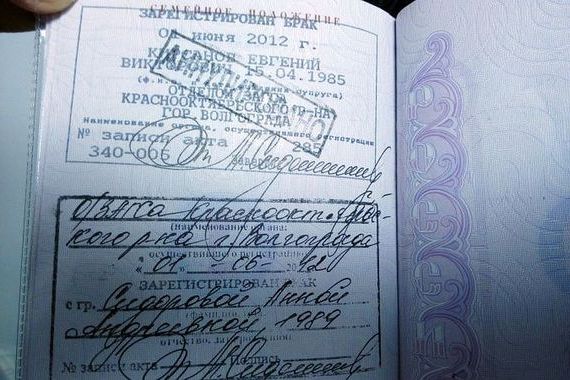 СЕМЕЙНОЕ ПОЛОЖЕНИЕ
ЗАРЕГИСТРИРОВАН БРАК
01 июня 2012 г.
ЕВГЕНИЙ
15.04.1985
ОТДЕЛОМ
КРАСНООКТЯБРЬСКОГО Р-НА
ГОР. ВОЛГОГРАДА
Наименование органа, осуществившего регистрацию
№ записи акта 285
340-006
ОЗАГСа Краснооктябрь-
ского р-на г. Волгограда
(наименование органа,
осуществившего регистрацию)
"01" - 06 - 2012
ЗАРЕГИСТРИРОВАН БРАК
с гр. Сидоровой Анной
Андреевной, 1989
отчество, дата рождения)
№ записи акта Подпись